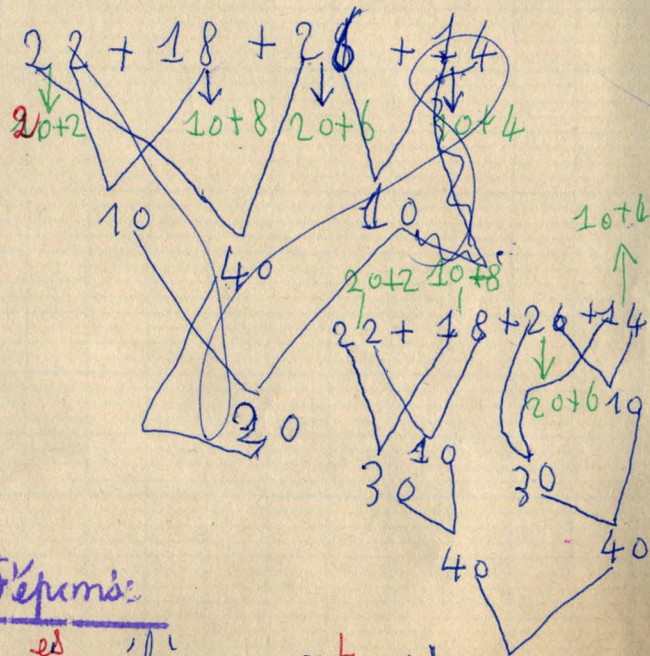 22 + 18 + 26 + 14
20+2 10+8 20+6 10+4
10 10
40
20
10+4
20+2 10+8
22 + 18 + 26 + 14
20+6 10
30 10 30
40 40